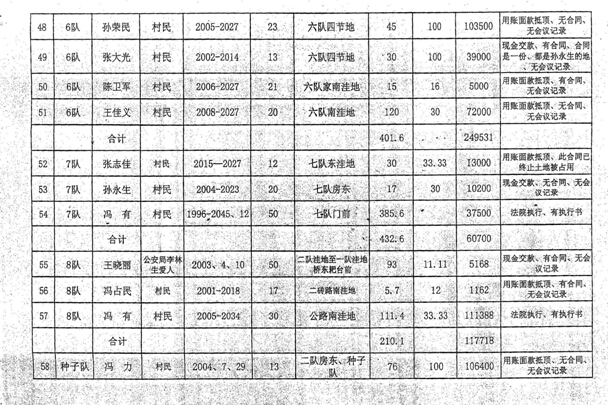 48 6队 孙荣民 村民 2005-2027 23 六队四节地 45 100 103500 用账面款抵顶、无合同、无会议记录
49 6队 张大光 村民 2002-2014 13 六队四节地 30 100 39000 现金交款、有合同、合同是一份、都是孙永生的地无会议记录
50 6队 陈卫军 村民 2006-2027 21 六队家南洼地 15 16 5000 用账面款抵顶、有合同、无会议记录
51 6队 王佳义 村民 2008-2027 20 六队南洼地 120 30 72000 用账面款抵顶、无合同、无会议记录
合计 401.6 249531
52 7队 张志佳 村民 2015—2027 12 七队东洼地 30 33.33 13000 用账面款抵顶、此合同已终止土地被占用
53 7队 孙永生 村民 2004-2023 20 七队房东 17 30 10200 现金交款、无合同、无会议记录
54 7队 冯 有 村民 1996-2045、12 50 七队门前 385.6 37500 法院执行、有执行书
合计 432.6 60700
55 8队 王晓丽 公安局李林生爱人 2003、4、10 50 二队洼地至一队洼地桥东耙台前 93 11.11 5168 现金交款、有合同、无会议记录
56 8队 冯占民 村民 2001-2018 17 二砖路南洼地 5.7 12 1162 用账面款抵顶、有合同、无会议记录
57 8队 冯 有 村民 2005-2034 30 公路南洼地 111.4 33.33 111388 法院执行、有执行书
合计 210.1 117718
58 种子队 冯 力 村民 2004、7、29 13 二队房东、种子队 76 100 106400 用账面款抵顶、无合同、无会议记录